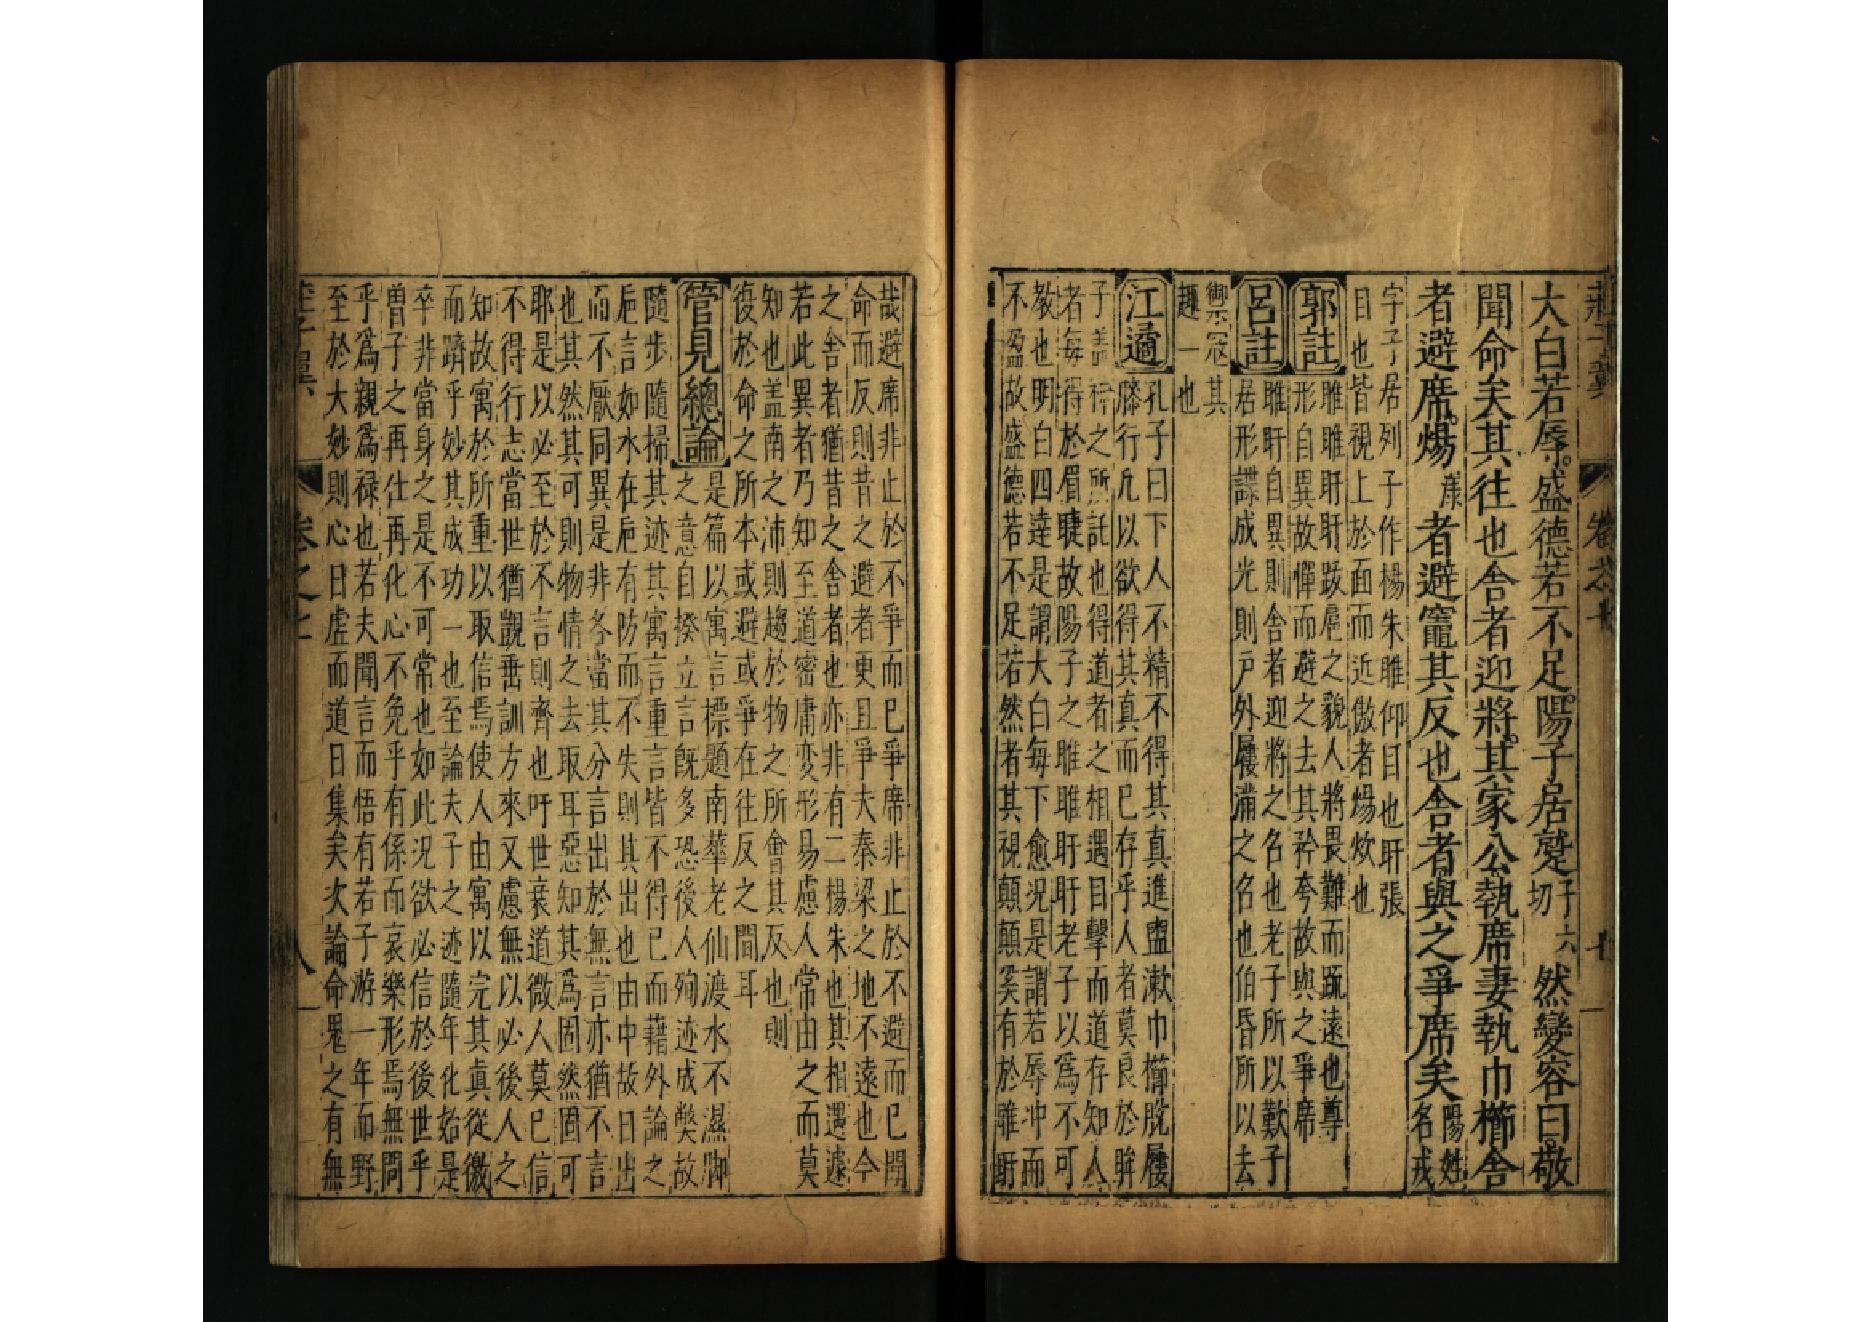 大白若辱盛德若不足陽子居蹵子六切然變容曰敬
聞命矣其往也舍者迎將其家公執席妻執巾櫛舍
者避席煬漾者避竈其反也舍者與之爭席矣陽姓名戎
字子居列子作楊朱睢仰目也盱張
目也皆視上於面而近傲者煬炊也
郭註
睢睢盱盱跋扈之貌人將畏難而踈遠也尊
形自異故憚而避之去其矜夸故與之爭席
呂註
睢盱自異則舍者迎將之名也老子所以歎子
居形諜成光則戶外屨滿之名也伯昏所以去
禦冦其
趣一也
江遹
孔子曰下人不精不得其真進盥漱巾櫛脫屨
膝行凢以欲得其真而已存乎人者莫良於眸
子盖神之所託也得道者之相遇目擊而道存知人
者每得於眉睫故陽子之睢睢盱盱老子以爲不可
教也明白四達是謂大白每下愈況是謂若辱冲而
不盈故盛德若不足若然者其視顛顛奚有於睢盱
哉避席非止於不爭而已爭席非止於不避而已聞
命而反則昔之避者更且爭夫秦梁之地不遠也今
之舍者猶昔之舍者也亦非有二楊朱也其相遇遽
若此異者乃知至道密庸変形易慮人常由之而莫
知也盖南之沛則趨於物之所會其反也則
復於命之所本或避或爭在往反之間耳
管見總論
是篇以寓言標題南華老仙渡水不濕脚
之意自揆立言旣多恐後人殉迹成獘故
隨步隨掃其迹其寓言重言皆不得已而藉外論之
巵言如水在巵有防而不失則其出也由中故曰出
而不厭同異是非各當其分言出於無言亦猶不言
也其然其可則物情之去取耳惡知其爲固然固可
耶是以必至於不言則齊也吁世衰道微人莫已信
不得行志當世猶覬垂訓方來又慮無以必後人之
知故寓於所重以取信焉使人由寓以完其真從微
而躋乎妙其成功一也至論夫子之迹隨年化始是
卒非當身之是不可常也如此況欲必信於後世乎
曾子之再仕再化心不免乎有係而哀樂形焉無間
乎爲親爲禄也若夫聞言而悟有若子游一年而野
至於大妙則心日虛而道日集矣次論命鬼之有無